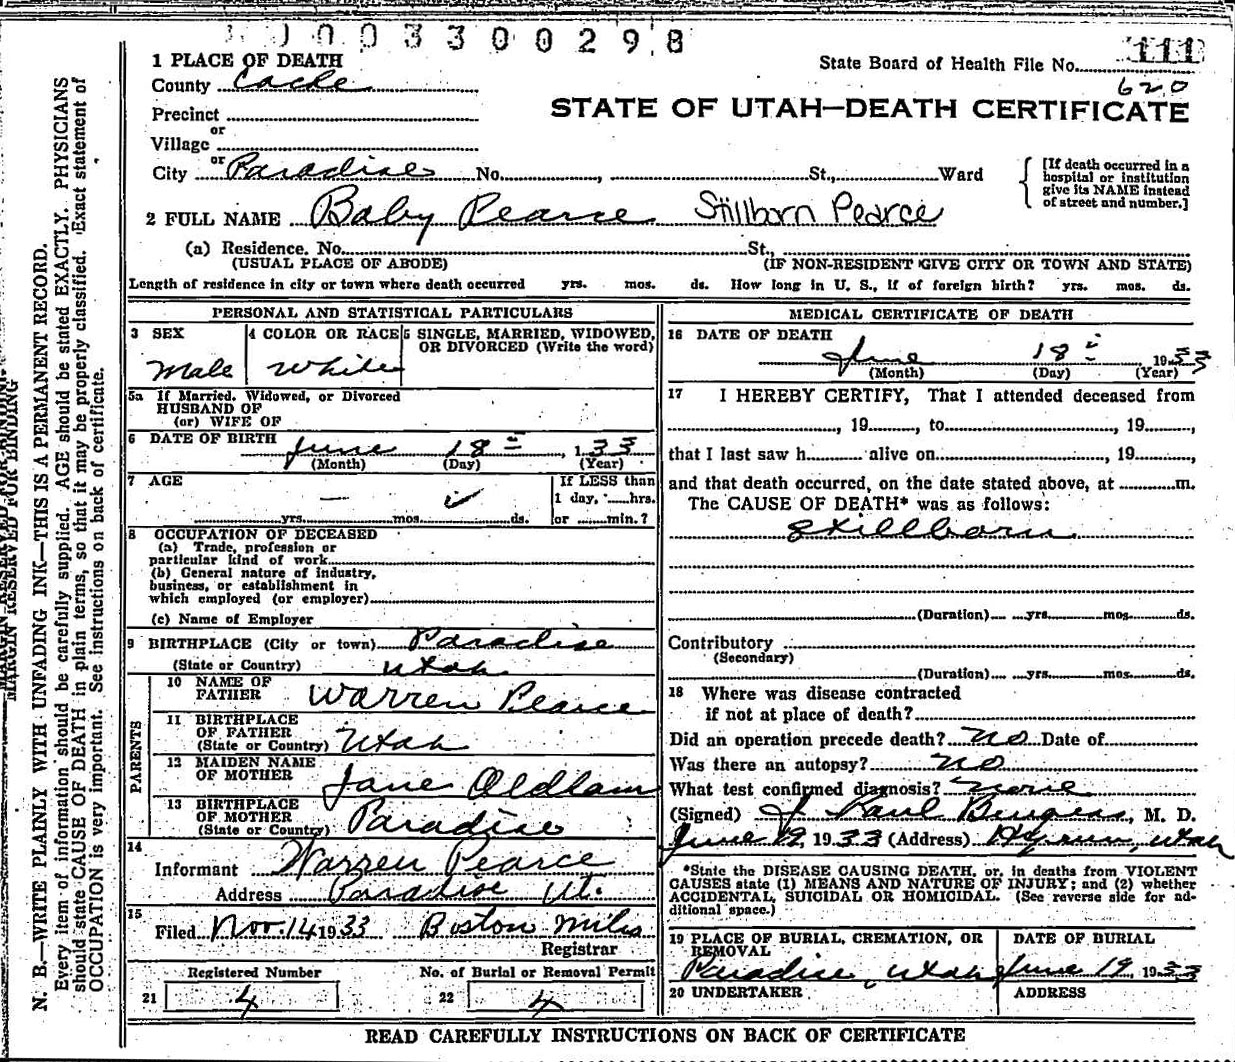 1003300298
1 PLACE OF DEATH
State Board of Health File No. 111
620
County Cache
STATE OF UTAH—DEATH CERTIFICATE
Precinct
or
Village
or
City Paradise No. , St., Ward
[If death occurred in a hospital or institution give its NAME instead of street and number.]
2 FULL NAME Baby Pearce Stillborn Pearce
(a) Residence. No. St.,
(USUAL PLACE OF ABODE) (IF NON-RESIDENT GIVE CITY OR TOWN AND STATE)
Length of residence in city or town where death occurred yrs. mos. ds. How long in U. S., if of foreign birth? yrs. mos. ds.
PERSONAL AND STATISTICAL PARTICULARS
3 SEX
Male
4 COLOR OR RACE
White
5 SINGLE, MARRIED, WIDOWED,
OR DIVORCED (Write the word)
5a If Married, Widowed, or Divorced
HUSBAND OF
(or) WIFE OF
6 DATE OF BIRTH June 18 , 1 33
(Month) (Day) (Year)
7 AGE
yrs. mos. ds.
If LESS than
1 day, hrs.
or min.?
8 OCCUPATION OF DECEASED
(a) Trade, profession or
particular kind of work
(b) General nature of industry,
business, or establishment in
which employed (or employer)
(c) Name of Employer
9 BIRTHPLACE (City or town) Paradise
(State or Country) Utah
PARENTS
10 NAME OF
FATHER Warren Pearce
11 BIRTHPLACE
OF FATHER
(State or Country) Utah
12 MAIDEN NAME
OF MOTHER Jane Oldham
13 BIRTHPLACE
OF MOTHER
(State or Country) Paradise
14
Informant Warren Pearce
Address Paradise Ut.
15
Filed Nov. 14 1933 Boston Miles
Registrar
Registered Number No. of Burial or Removal Permit
21 4 22 4
MEDICAL CERTIFICATE OF DEATH
16 DATE OF DEATH
June 18 1933
(Month) (Day) (Year)
17 I HEREBY CERTIFY, That I attended deceased from
, 19 , to , 19 ,
that I last saw h alive on , 19 ,
and that death occurred, on the date stated above, at m.
The CAUSE OF DEATH* was as follows:
Stillborn
(Duration) yrs. mos. ds.
Contributory
(Secondary)
(Duration) yrs. mos. ds.
18 Where was disease contracted
if not at place of death?
Did an operation precede death? no Date of
Was there an autopsy? no
What test confirmed diagnosis? none
(Signed) J. Paul Burgess, M. D.
June 19, 1933 (Address) Hyrum, Utah
*State the DISEASE CAUSING DEATH, or, in deaths from VIOLENT
CAUSES state (1) MEANS AND NATURE OF INJURY; and (2) whether
ACCIDENTAL, SUICIDAL OR HOMICIDAL. (See reverse side for ad-
ditional space.)
19 PLACE OF BURIAL, CREMATION, OR
REMOVAL
Paradise, Utah
DATE OF BURIAL
June 19, 1933
20 UNDERTAKER ADDRESS
READ CAREFULLY INSTRUCTIONS ON BACK OF CERTIFICATE
MARGIN RESERVED FOR BINDING
N. B.—WRITE PLAINLY WITH UNFADING INK—THIS IS A PERMANENT RECORD.
Every item of information should be carefully supplied. AGE should be stated EXACTLY. PHYSICIANS
should state CAUSE OF DEATH in plain terms, so that it may be properly classified. Exact statement of
OCCUPATION is very important. See instructions on back of certificate.